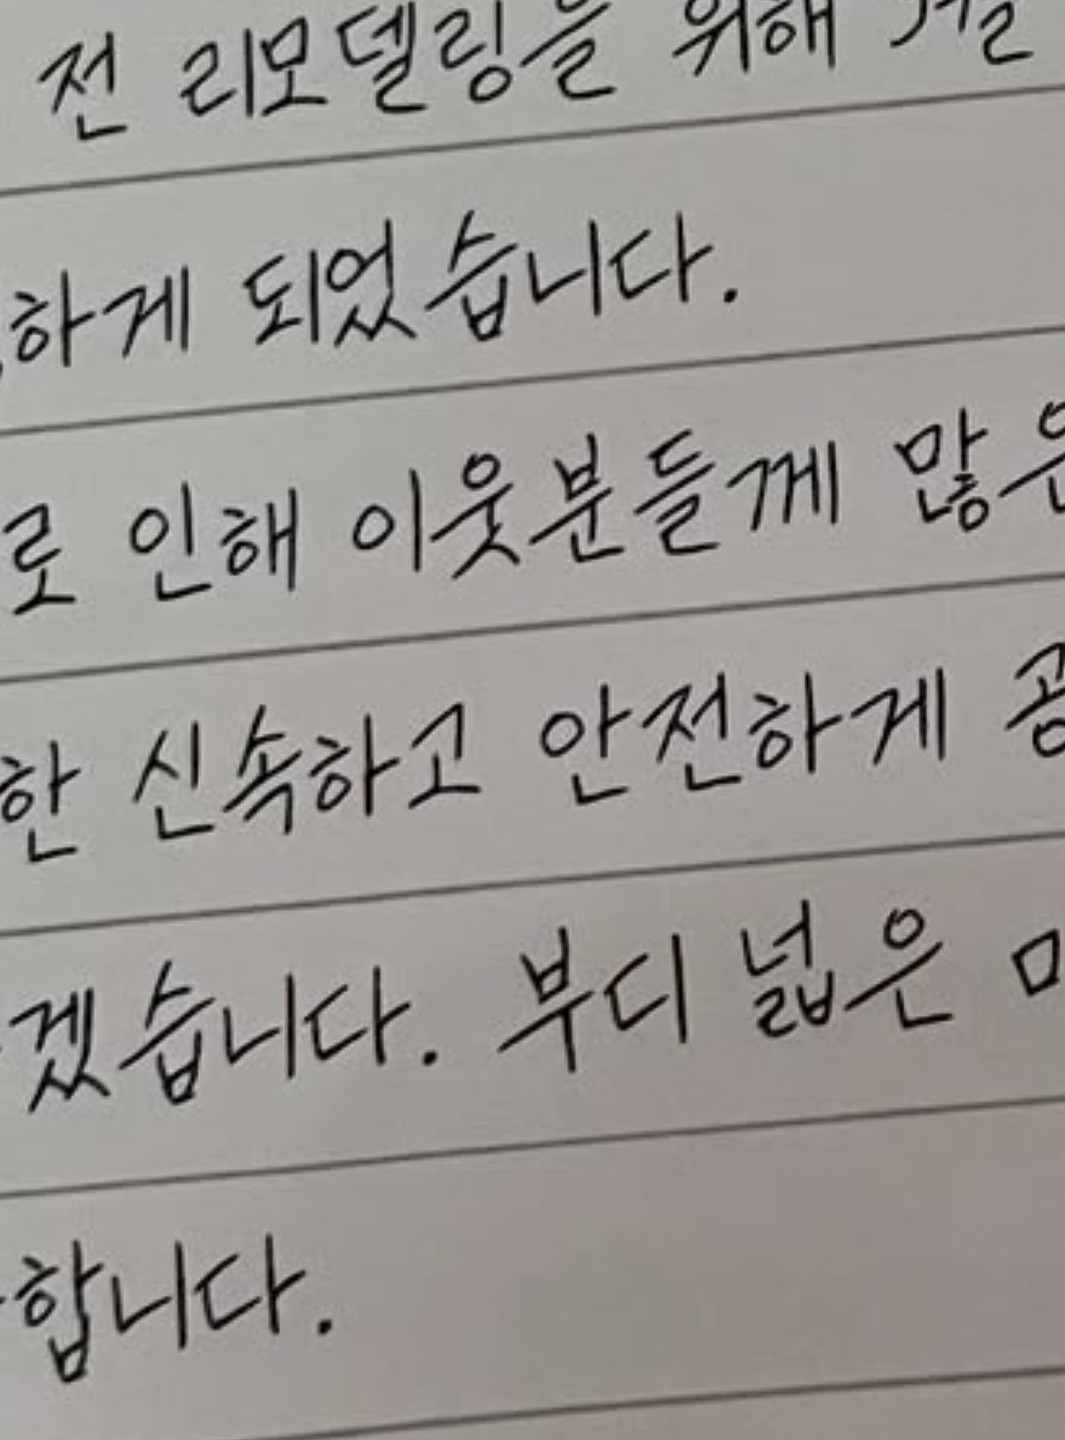 전 리모델링을 위해
하게 되었습니다.
로 인해 이웃분들께 많은
한 신속하고 안전하게 공
겠습니다. 부디 넓은 마
합니다.